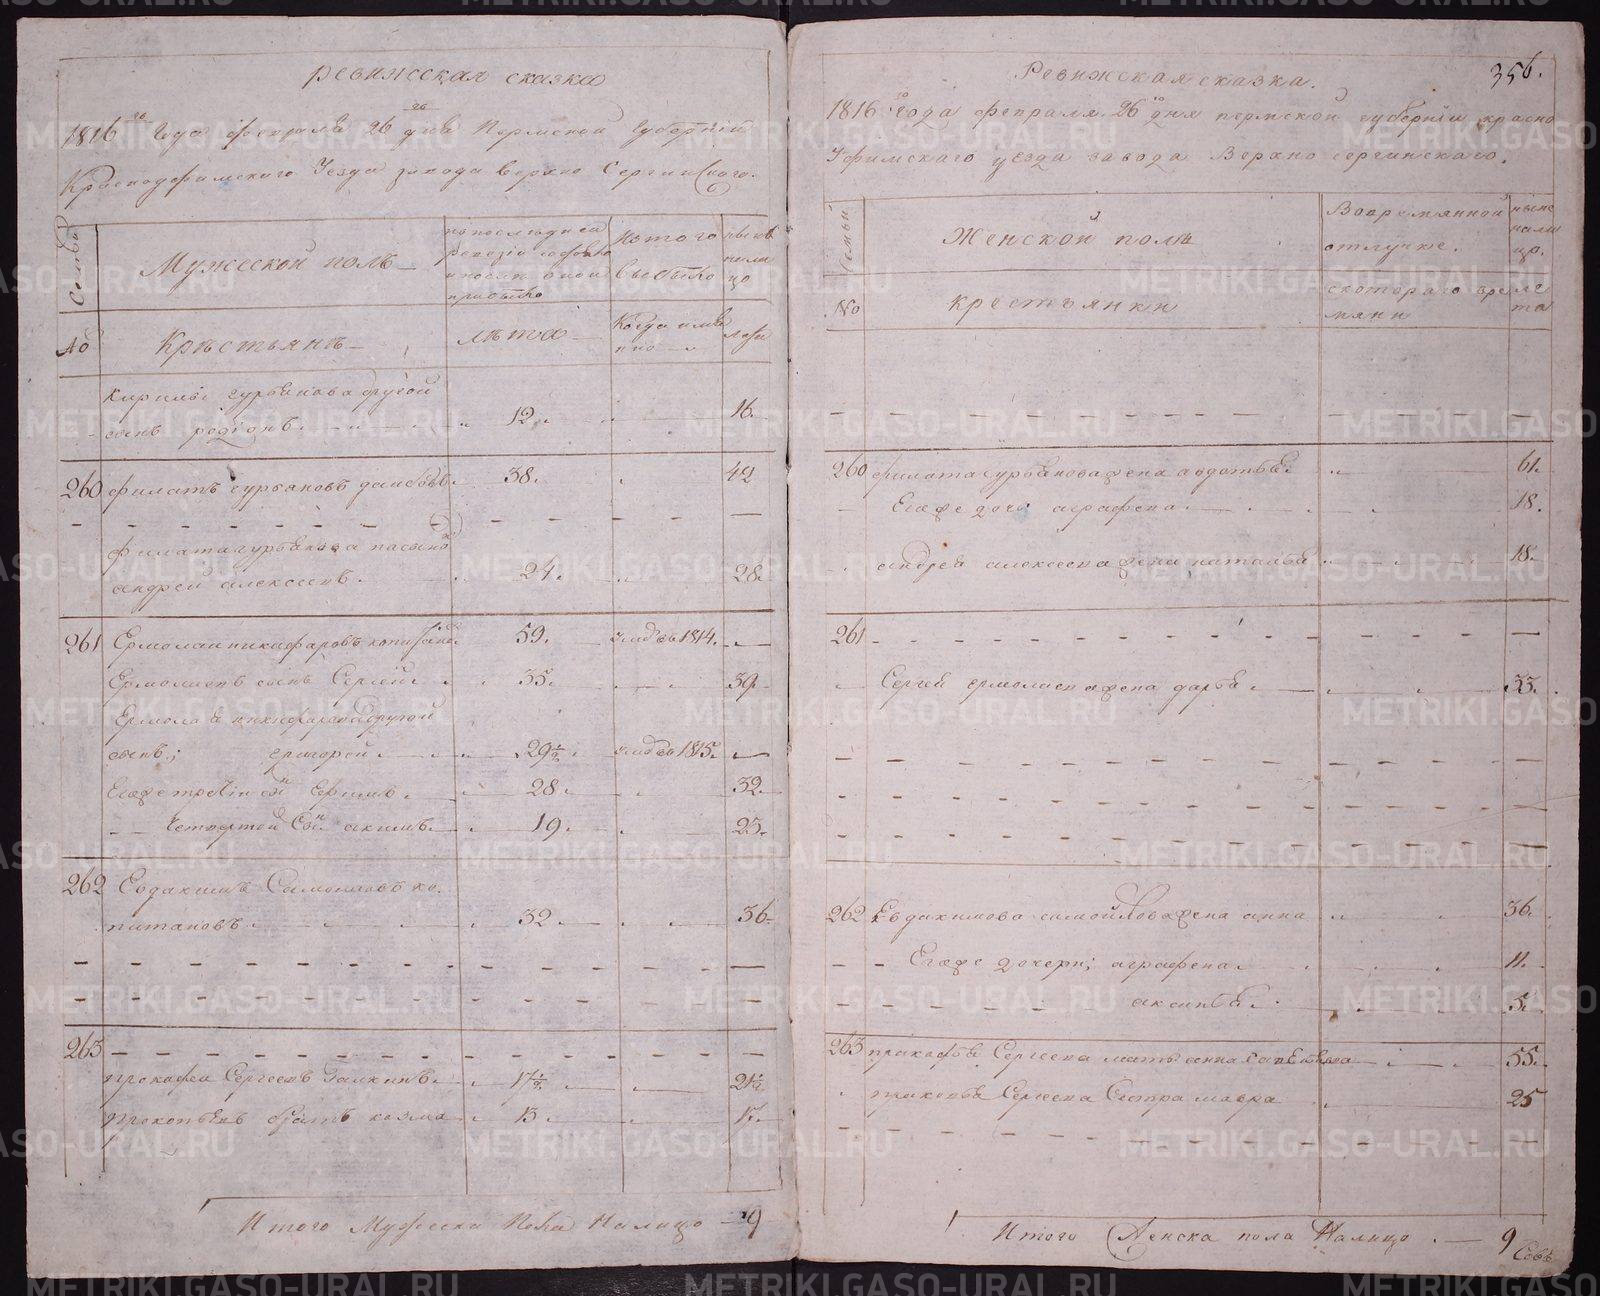 ревижеская сказка
1816го Года февраля 26 дня Пермской Губернии
Красноуфимского Уезда завода верхно Сергинского.
Семьи
Мужеской полъ
по последней ревезии состояло и после оной прибыло
Ис того выбыло
ныне налицо
№
Крестьяне
лета
Когда имянно
лета
Кирилы гурьянова другой
сынъ родионъ 12. 16.
260 филатъ гурьяновъ 38. 42
филата гурьянова пасынок
андрей алексеевъ 24. 28.
261 Ермолай никифаровъ 59. 1814.
Ермолаевъ сынъ Сергей 35. 39.
Ермолая никифарова другой
сынъ; григорей 29½ 1815.
Егоже третий сын Ефимъ 28. 32.
Четвертой Сын акимъ 19. 23.
262 Евдакимъ Самойловъ ка-
питановъ 32 36
263
прокофеи Сергеевъ Галкинъ 17½ 21½
прокопьевъ братъ козма 13 17.
Итого Мужеска Пола Налицо 9
Ревижская сказка.
356.
1816го Года февраля 26го дня пермской губернии красно
Уфимскаго уезда завода Верхно сергинскаго.
Семьи
Женской полъ
Вовремянной отлучке.
ныне налицо.
№
крестьянки
скотораго времяни
лета
260 филата гурьянова жена авдотья 61.
Егоже дочь аграфена 18.
андрея алексеева жена наталья 18.
261
Сергея ермолаева жена дарья 33.
262 Евдакимова самойлова жена анна 36.
Егоже дочери; аграфена 11.
аксинья 5.
263 прокофья Сергеева мать анна 55.
прокопья Сергеева Сестра мавра 25
Итого Женска пола Налицо 9